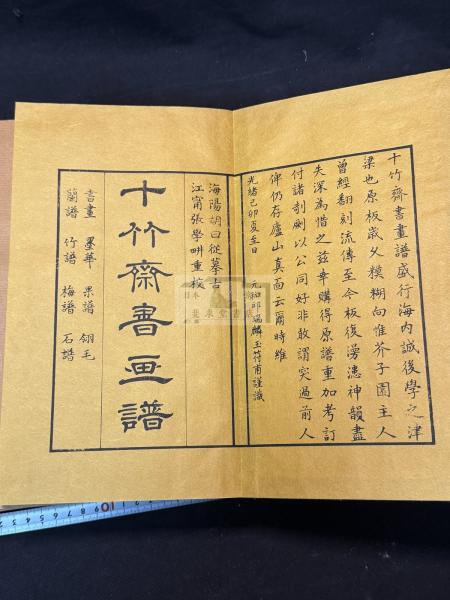 十竹齋書畫譜盛行海內誠後學之津
梁也原板歲久糢糊向惟芥子園主人
曾經翻刻流傳至今板復漫漶神韻盡
失深為惜之茲幸購得原譜重加考訂
付諸剞劂以公同好非敢謂突過前人
俾仍存廬山真面云爾時維
光緒己卯夏至日 元和邱瑞麟玉符甫謹識
海陽胡曰從摹古
江甯張學畊重校
十竹齋書画譜
書畫 墨華 果譜 翎毛
蘭譜 竹譜 梅譜 石譜
日本
書店